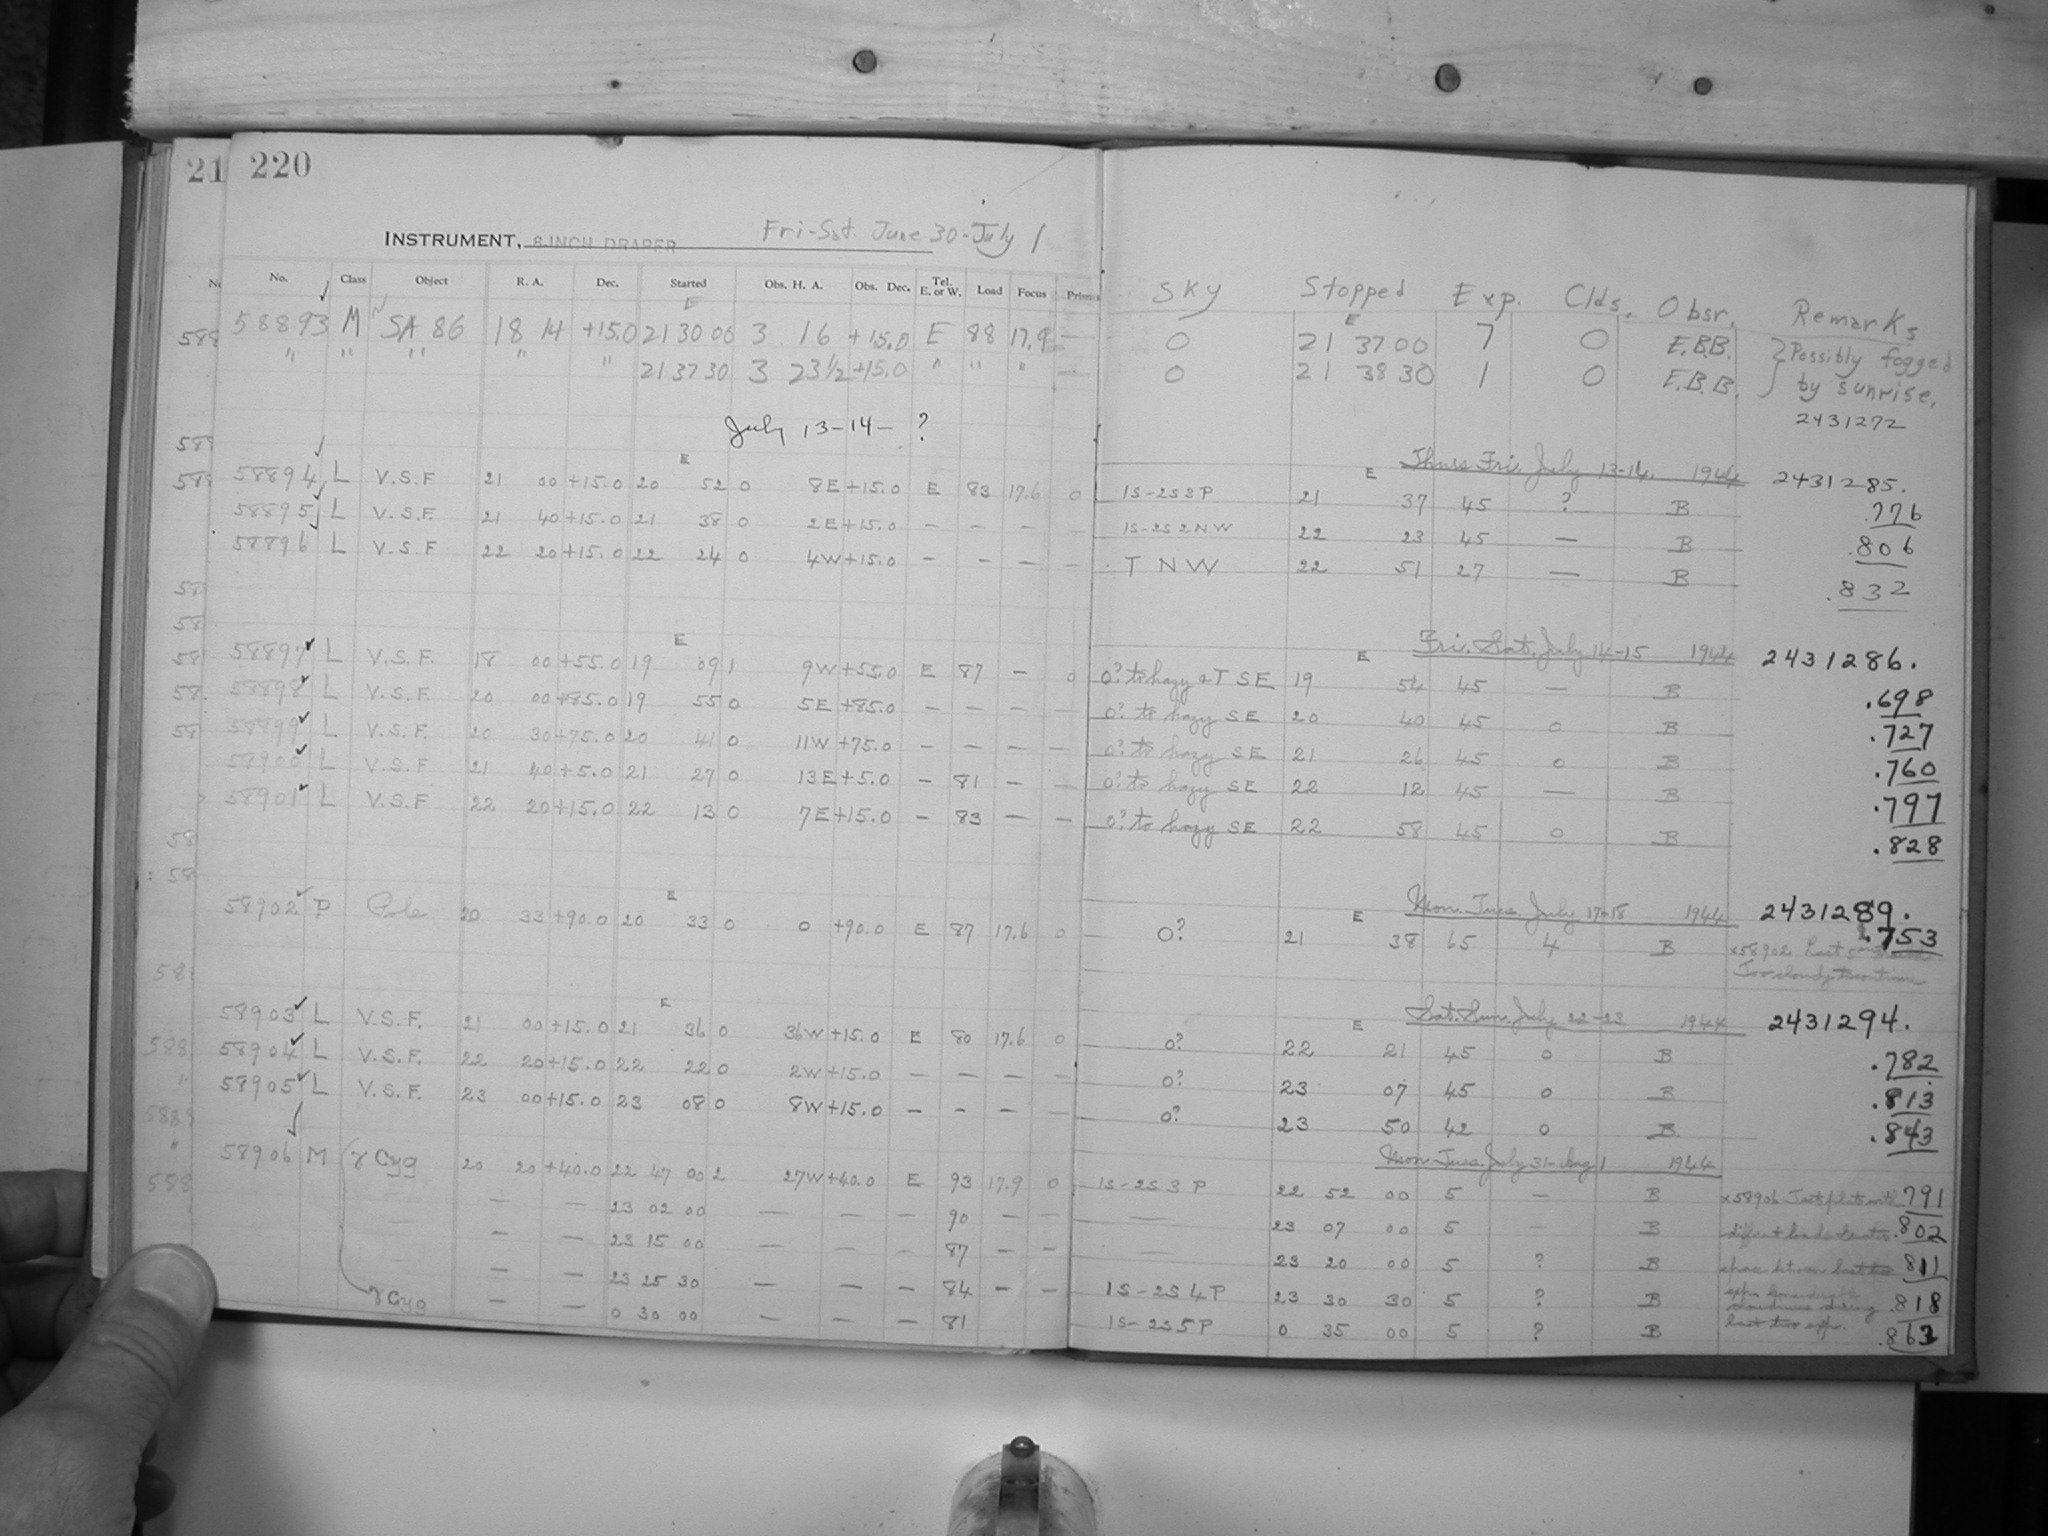 21 220
INSTRUMENT, 8-INCH DRAPER Fri-Sat. June 30-July 1
No. Class Object R. A. Dec. Started Obs. H. A. Obs. Dec. Tel. E. or W. Load Focus Prisms SKY Stopped Exp. Clds. Obsr. Remarks
E E
58893 M SA 86 18 14 +15.0 21 30 00 3 16 +15.0 E 88 17.9 — 0 21 37 00 7 0 E.B.B. } Possibly fogged
" " " " " 21 37 30 3 23½ +15.0 " " " — 0 21 38 30 1 0 E.B.B. by sunrise,
2431272
July 13-14- ?
E E Thurs Fri. July 13-14. 1944 2431285.
58894 L V.S.F 21 00 +15.0 20 52 0 8E +15.0 E 83 17.6 0 1S-2S3P 21 37 45 ? B .776
58895 L V.S.F. 21 40 +15.0 21 38 0 2E +15.0 — — — — 1S-2S2NW 22 23 45 — B .806
58896 L V.S.F 22 20 +15.0 22 24 0 4W +15.0 — — — — T NW 22 51 27 — B .832
E E Fri. Sat. July 14-15 1944 2431286.
58897 L V.S.F. 18 00 +55.0 19 09 1 9W +55.0 E 87 — 0 0? to hazy & T SE 19 54 45 — B .698
58898 L V.S.F. 20 00 +85.0 19 55 0 5E +85.0 — — — — 0? to hazy SE 20 40 45 0 B .727
58899 L V.S.F. 20 30 +75.0 20 41 0 11W +75.0 — — — — 0? to hazy SE 21 26 45 0 B .760
58900 L V.S.F 21 40 +5.0 21 27 0 13E +5.0 — 81 — — 0? to hazy SE 22 12 45 — B .797
58901 L V.S.F 22 20 +15.0 22 13 0 7E +15.0 — 83 — — 0? to hazy SE 22 58 45 0 B .828
E E Mon. Tues. July 17-18 1944 2431289.
58902 P Pole 20 33 +90.0 20 33 0 0 +90.0 E 87 17.6 0 0? 21 38 65 4 B .753
x58902 Last 5
Too cloudy to continue
E E Sat. Sun. July 22-23 1944 2431294.
58903 L V.S.F. 21 00 +15.0 21 36 0 36W +15.0 E 80 17.6 0 0? 22 21 45 0 B .782
58904 L V.S.F. 22 20 +15.0 22 22 0 2W +15.0 — — — — 0? 23 07 45 0 B .813
58905 L V.S.F. 23 00 +15.0 23 08 0 8W +15.0 — — — — 0? 23 50 42 0 B .843
Mon. Tues. July 31-Aug 1 1944
58906 M γ Cyg 20 20 +40.0 22 47 00 2 27W +40.0 E 93 17.9 0 1S-2S3P 22 52 00 5 — B x58906 Test plate with .791
— — 23 02 00 — — — 90 — — — 23 07 00 5 — B different loads .802
— — 23 15 00 — — — 87 — — — 23 20 00 5 ? B space between last two .811
— — 23 25 30 — — — 84 — — 1S-2S4P 23 30 30 5 ? B .818
γ Cyg — — 0 30 00 — — — 81 1S-2S5P 0 35 00 5 ? B last two exp. .863